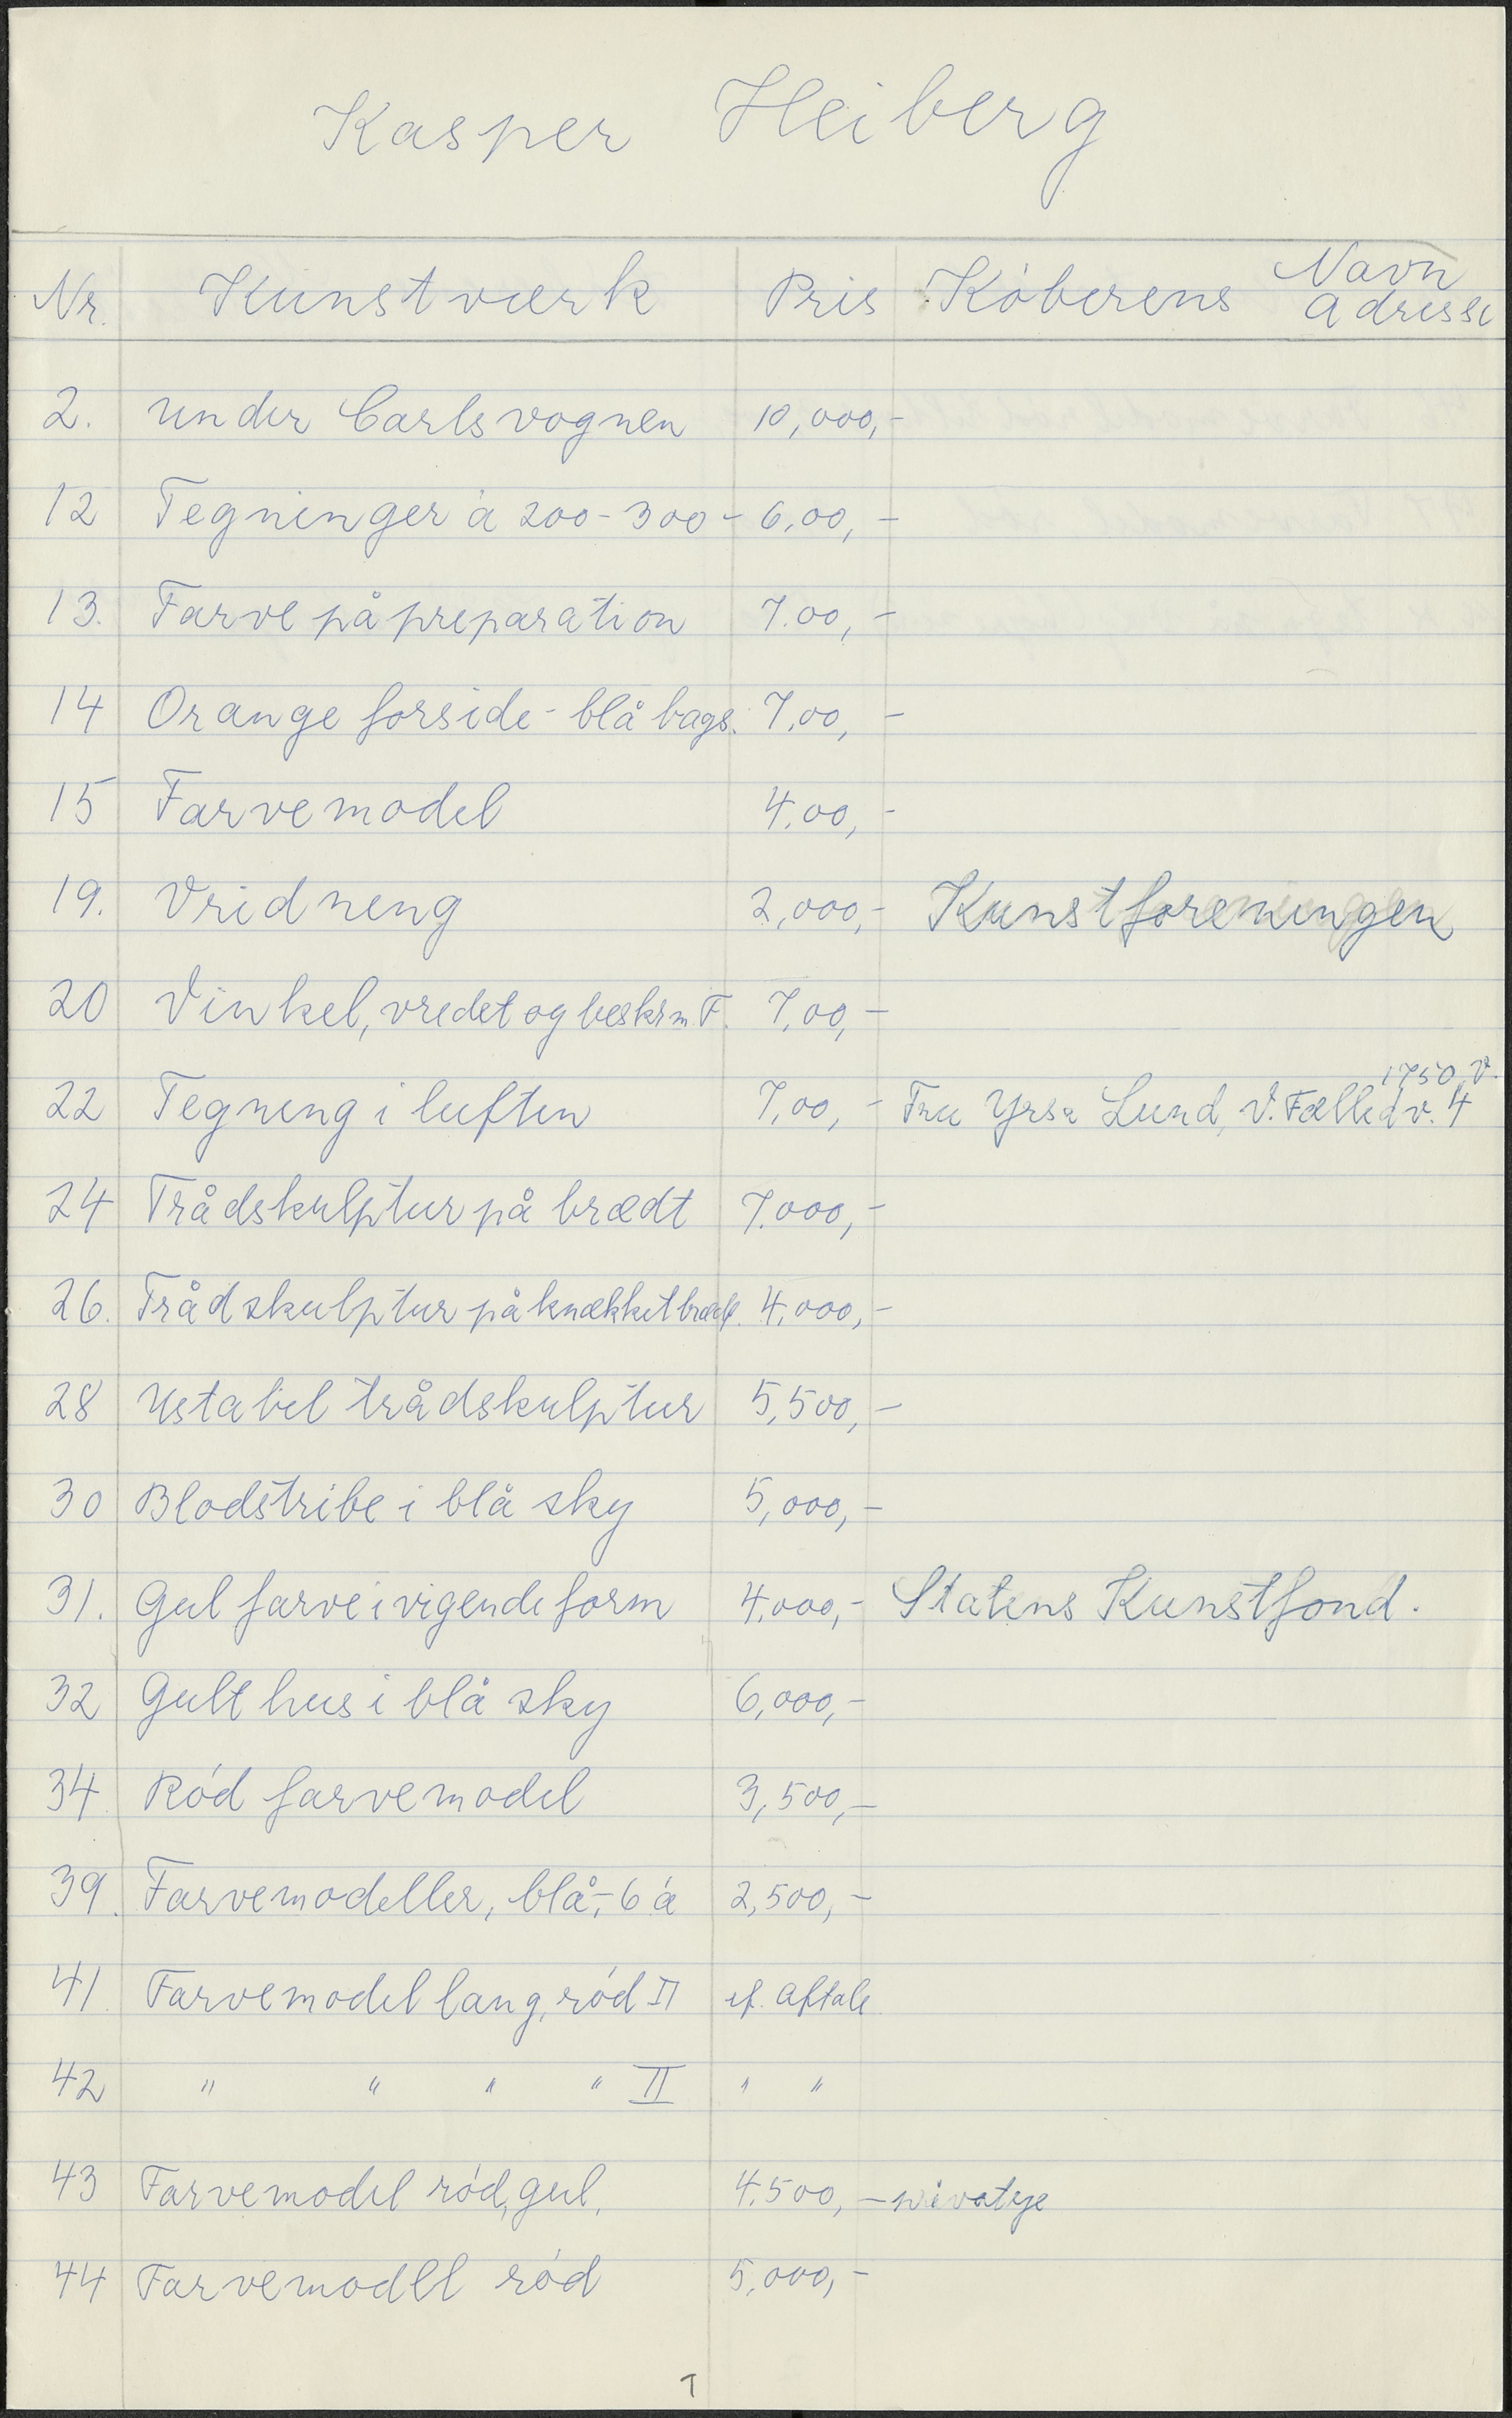 Kasper Heiberg
Nr. Kunstværk Pris Köberens Navn
Adresse
2. under Carlsvognen 10,000,-
12 Tegninger à 200-300- 6,00,-
13. Farve på preparation 7.00,-
14 Orange forside - blå bags. 7,00,-
15 Farvemodel 4.00,-
19. Vridneng 2,000,- Kunstforeningen
20 Vinkel, vredet og beskrm. F. 7,00,-
1750 V.
22 Tegning i luften 7,00,- Fru Yrsa Lund, V. Fælledv. 4
24 Trådskulptur på brædt 7.000,-
26. Trådskulptur på knækket brædt. 4.000,-
28 Ustabel trådskulptur 5,500,-
30 Blodstribe i blå sky 5,000,-
31. Gul farve i vigende form 4.000,- Statens Kunstfond.
32 Gult hus i blå sky 6,000,-
34 Röd farvemodel 3,500,-
39. Farvemodeller, blå,- 6 à 2,500,-
41. Farvemodel lang, röd II ef. aftale
42 " " " " II " "
43 Farvemodel röd, gul, 4.500,- privateje
44 Farvemodel röd 5.000,-